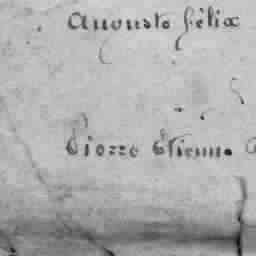 Auguste Félix
Pierre Etienne